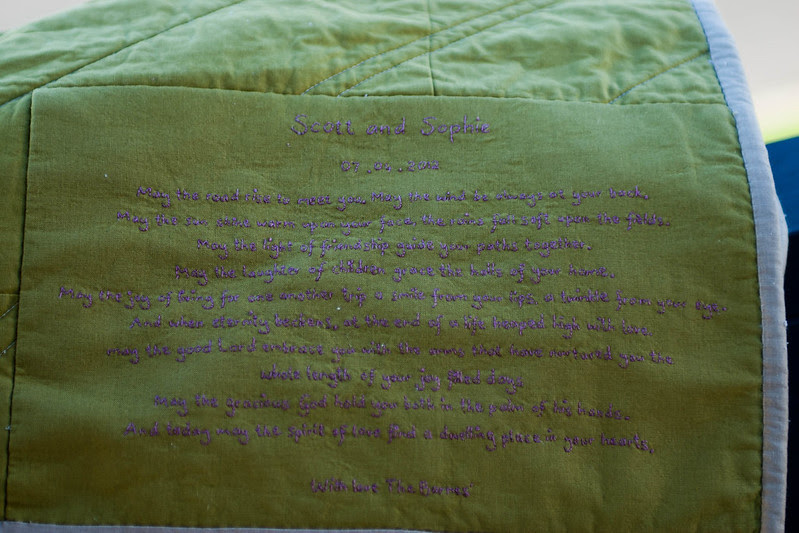 Scott and Sophie
07.04.2012
May the road rise to meet you, May the wind be always at your back,
May the sun shine warm upon your face, the rains fall soft upon the fields.
May the light of friendship guide your paths together.
May the laughter of children grace the halls of your home.
May the joy of living for one another trip a smile from your lips, a twinkle from your eye.
And when eternity beckons, at the end of a life heaped high with love
may the good Lord embrace you with the arms that have nurtured you the
whole length of your joy filled days
May the gracious God hold you both in the palm of his hands.
And today may the spirit of love find a dwelling place in your hearts.
With love The